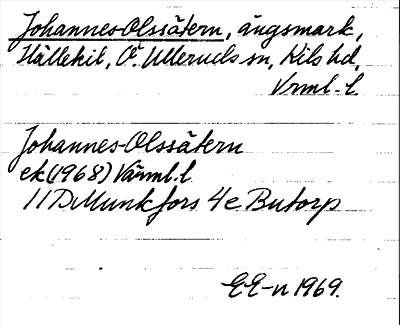 Johannes-Olssätern, ängsmark,
Hällekil, Ö. Ulleruds sn, Kils hd,
Vrml. l.
Johannes-Olssätern
ek (1968) Värml. l.
11D Munkfors 4e Butorp
EE-n 1969.